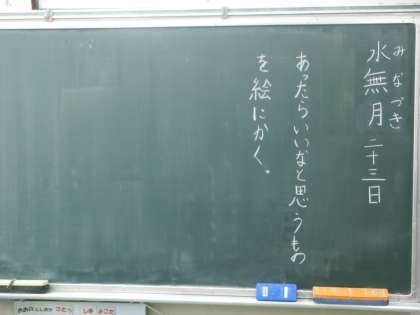 水無月二十三日
みなづき
あったらいいなと思うもの
を絵にかく。